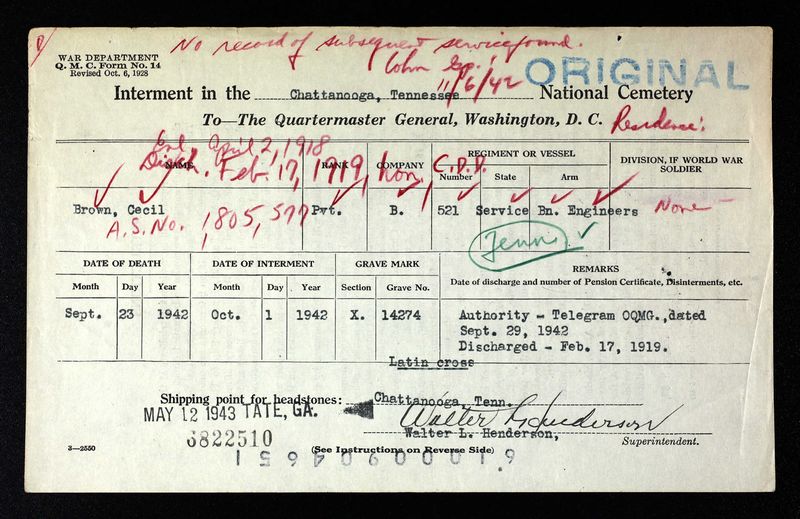 No record of subsequent service found.
WAR DEPARTMENT
Q. M. C. Form No. 14
Revised Oct. 6, 1928
11/6/42
ORIGINAL
Interment in the Chattanooga, Tennessee National Cemetery
To—The Quartermaster General, Washington, D. C.
Residence:
Enl. April 2, 1918
Disch. Feb. 17, 1919, hon. C.D.D.
NAME RANK COMPANY REGIMENT OR VESSEL DIVISION, IF WORLD WAR SOLDIER
Number State Arm
Brown, Cecil Pvt. B. 521 Service Bn. Engineers None
A.S. No. 1,805,577
Tenn.
DATE OF DEATH DATE OF INTERMENT GRAVE MARK REMARKS
Month Day Year Month Day Year Section Grave No. Date of discharge and number of Pension Certificate, Disinterments, etc.
Sept. 23 1942 Oct. 1 1942 X. 14274 Authority - Telegram OQMG.,dated
Sept. 29, 1942
Discharged - Feb. 17, 1919.
Latin cross
Shipping point for headstones: Chattanooga, Tenn.
MAY 12 1943 TATE, GA.
Walter L. Henderson
6822510
Walter L. Henderson, Superintendent.
3—2550
(See Instructions on Reverse Side)